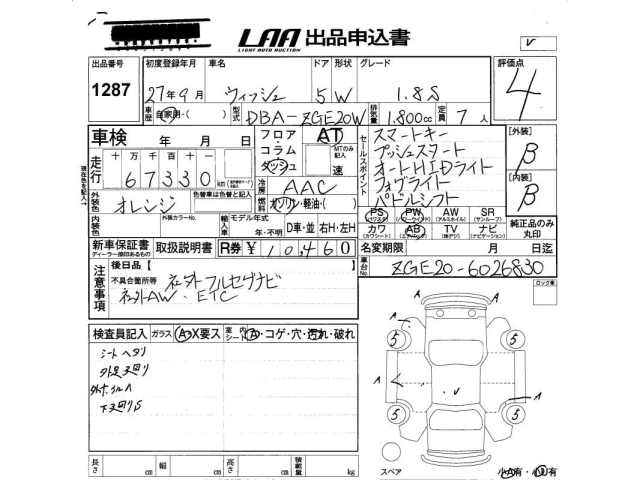 LAA 出品申込書
LIGHT AUTO AUCTION
出品番号
1287
初度登録年月 車名 ドア 形状 グレード
27年9月 ウィッシュ 5 W 1.8S
評価点
4
車歴 自家用・( ) 型式 DBA-ZGE20W 排気量 1.800cc 定員 7人
車検 年 月 日
フロア・コラム・ダッシュ
AT
MTのみ記入
速
走行 十万千百十
67330 km
現在色を記入→
冷房 AAC
燃料 ガソリン・軽油・( )
外装色 オレンジ 色替車は色替と記入
内装色 外装カラーNo. 輸入車 モデル年式 年・不明 D車・並 右H・左H
新車保証書 取扱説明書 R券 ¥10,460
ディーラー捺印あるもの
セールスポイント
スマートキー
プッシュスタート
オートHIDライト
フォグライト
パドルシフト
PS PW AW SR
(パワステ) (パワーウインドウ) (アルミホイル) (サンルーフ)
カワ AB TV ナビ
(カワシート) (エアバック) (地デジ) (ナビゲーション)
純正品のみ丸印
[外装]
B
[内装]
B
名変期限 月 日迄
車台No. ZGE20-6026830
注意事項
後日品【 】
不具合箇所等 社外フルセグナビ
社外AW. ETC
ロック車
検査員記入 ガラス A・X要ス 室内シート A・コゲ・穴・汚れ・破れ
シート ヘタリ
外足廻り
外ホイルA
下廻りS
5 5
A A
A v
5 5
A
長さ cm 幅 cm 高さ cm 積載量 kg
スペア
小A有・小U有